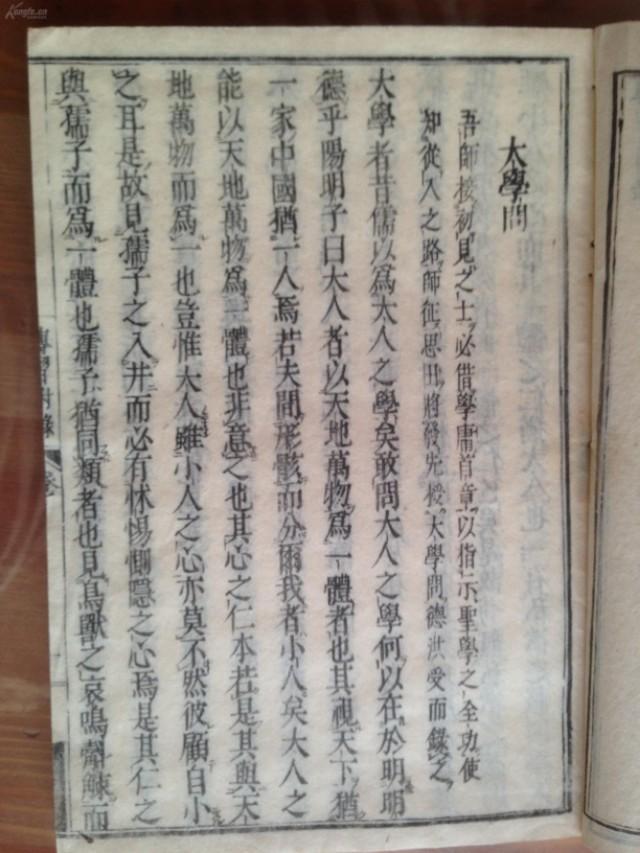 大學問
吾師接初見之士必借學庸首章以指示聖學之全功使
知從入之路師征思田將發先授大學問德洪受而錄之
大學者昔儒以爲大人之學矣敢問大人之學何以在於明明
德乎陽明子曰大人者以天地萬物爲一體者也其視天下猶
一家中國猶一人焉若夫間形骸而分爾我者小人矣大人之
能以天地萬物爲一體也非意之也其心之仁本若是其與天
地萬物而爲一也豈惟大人雖小人之心亦莫不然彼顧自小
之耳是故見孺子之入井而必有怵惕惻隱之心焉是其仁之
與孺子而爲一體也孺子猶同類者也見鳥獸之哀鳴觳觫而
傳習附錄 卷
Kongfz.cn